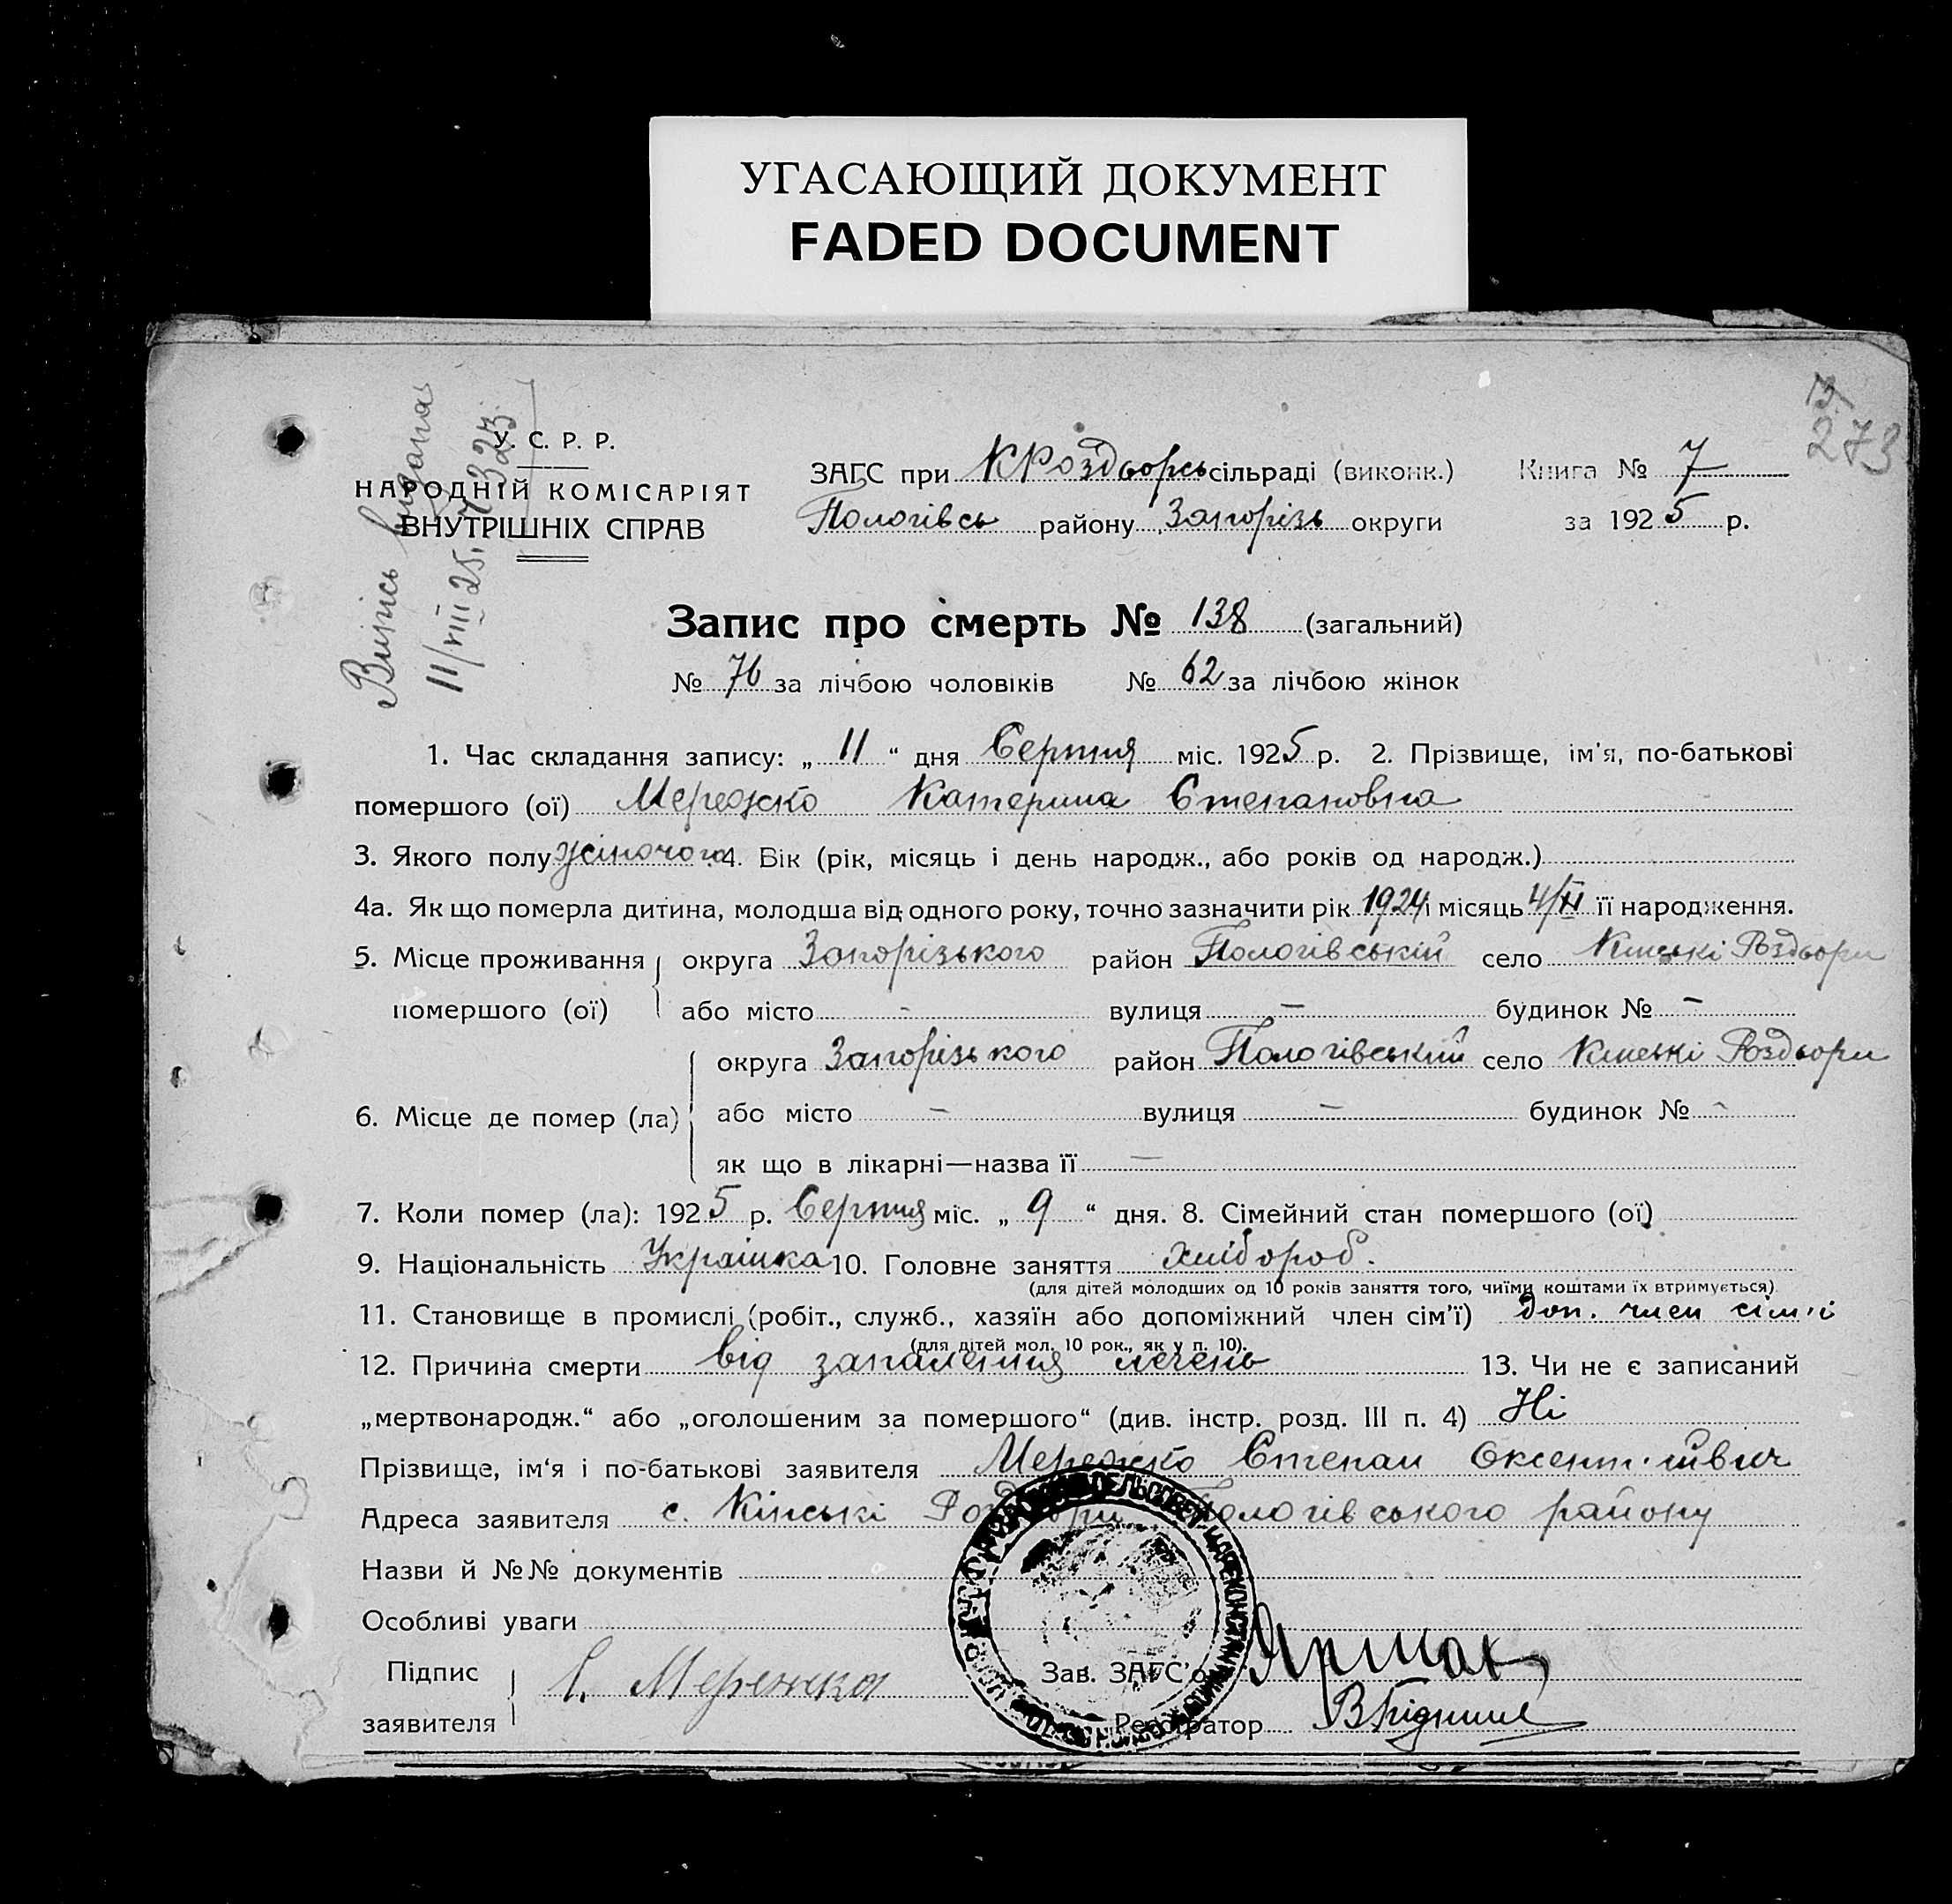 УГАСАЮЩИЙ ДОКУМЕНТ
FADED DOCUMENT
273
Випись видана
11/VIII 25. 7323
У. С. Р. Р.
НАРОДНІЙ КОМІСАРІЯТ
ВНУТРІШНІХ СПРАВ
ЗАГС при КРоздорсь сільраді (виконк.) Книга № 7
Пологівсь району Запорізь округи за 1925 р.
Запис про смерть № 138 (загальний)
№ 76 за лічбою чоловіків № 62 за лічбою жінок
1. Час складання запису: „ 11 “ дня Серпня міс. 1925 р. 2. Прізвище, ім'я, по-батькові
помершого (ої) Мережко Катерина Степановна
3. Якого полу жіночого 4. Вік (рік, місяць і день народж., або років од народж.)
4а. Як що померла дитина, молодша від одного року, точно зазначити рік 1924 і місяць 4/XI її народження.
5. Місце проживання округа Запорізького район Пологівський село Кінські Роздори
помершого (ої) або місто - вулиця - будинок № -
округа Запорізького район Пологівський село Кінські Роздори
6. Місце де помер (ла) або місто - вулиця - будинок № -
як що в лікарні—назва її —
7. Коли помер (ла): 1925 р. Серпня міс. „ 9 “ дня. 8. Сімейний стан помершого (ої)
9. Національність Українка 10. Головне заняття хлібороб.
(для дітей молодших од 10 років заняття того, чиїми коштами їх втримується)
11. Становище в промислі (робіт., служб., хазяїн або допоміжний член сім'ї) Доп. член сім'ї
(для дітей мол. 10 рок., як у п. 10).
12. Причина смерти від запалення лечень 13. Чи не є записаний
„мертвонародж.“ або „оголошеним за помершого“ (див. інстр. розд. III п. 4) Ні
Прізвище, ім'я і по-батькові заявителя Мережко Степан Оксентиївич
Адреса заявителя с. Кінські Роздори Пологівського району
Назви й №№ документів
Особливі уваги
Підпис
заявителя С. Мережка
Зав. ЗАГС'ом
Реєстратор